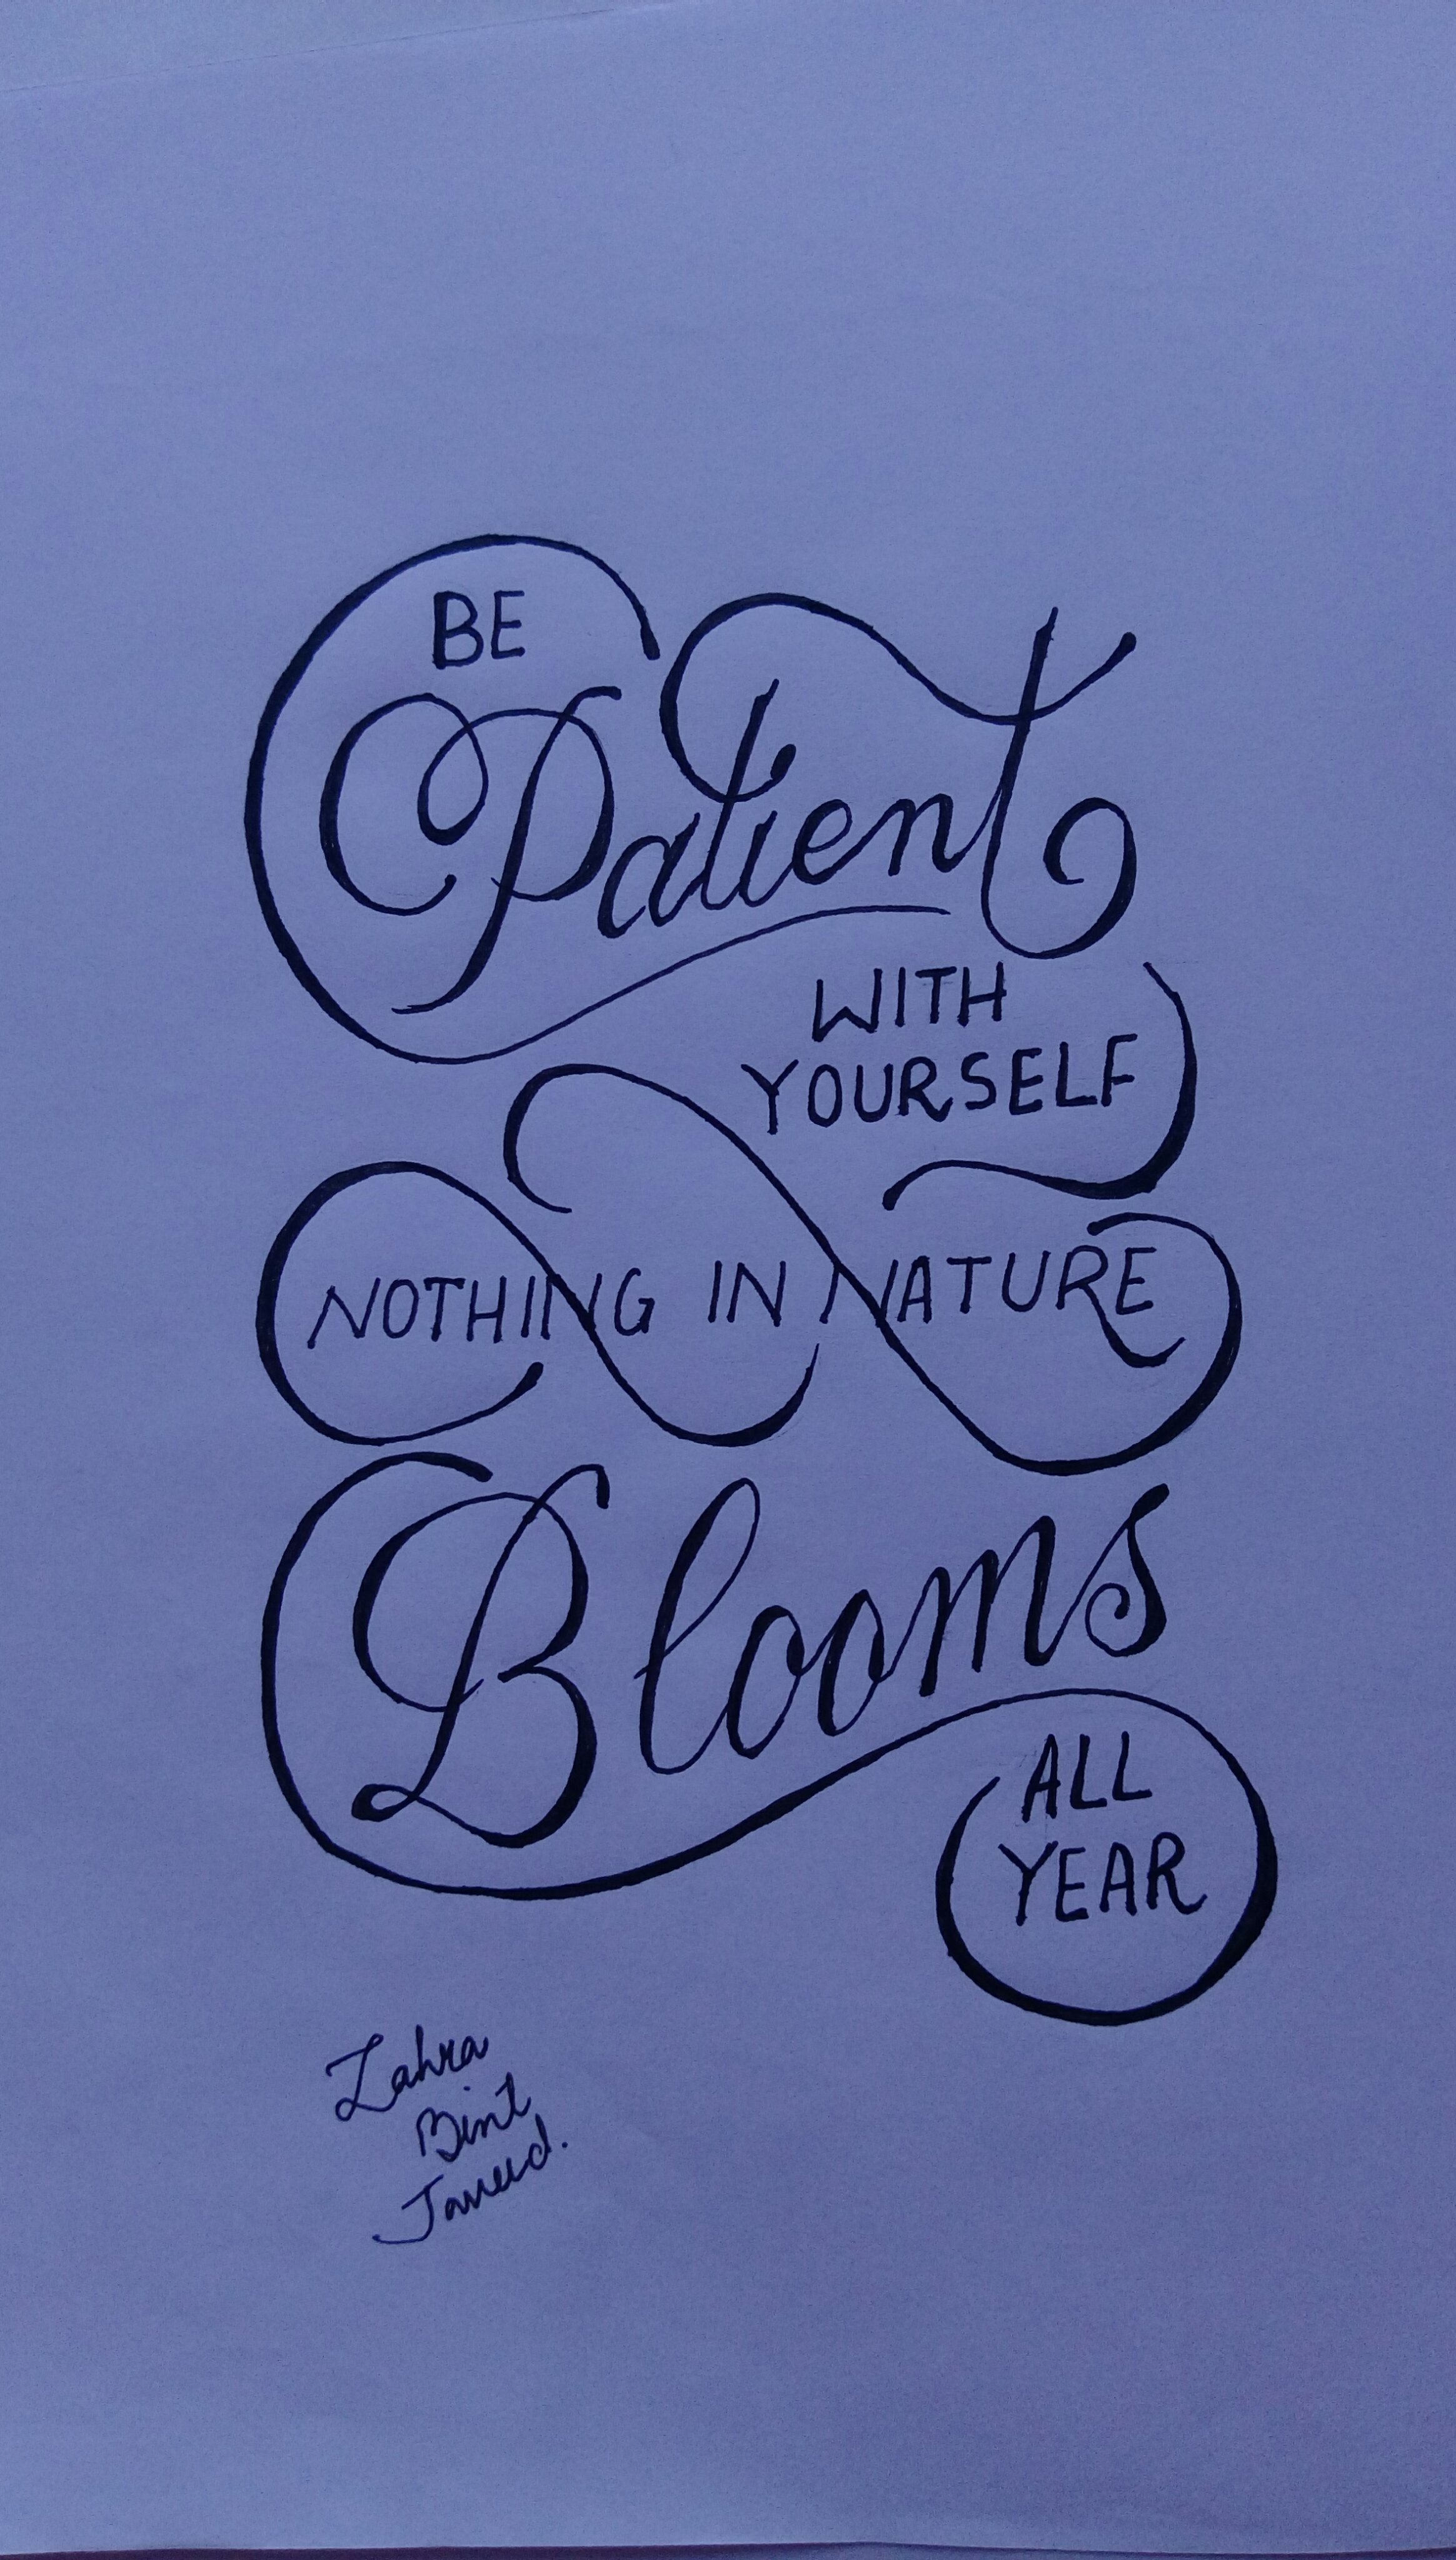 BE
Patient
WITH
YOURSELF
NOTHING IN NATURE
Blooms
ALL
YEAR
Zahra
Bint
Javeed.